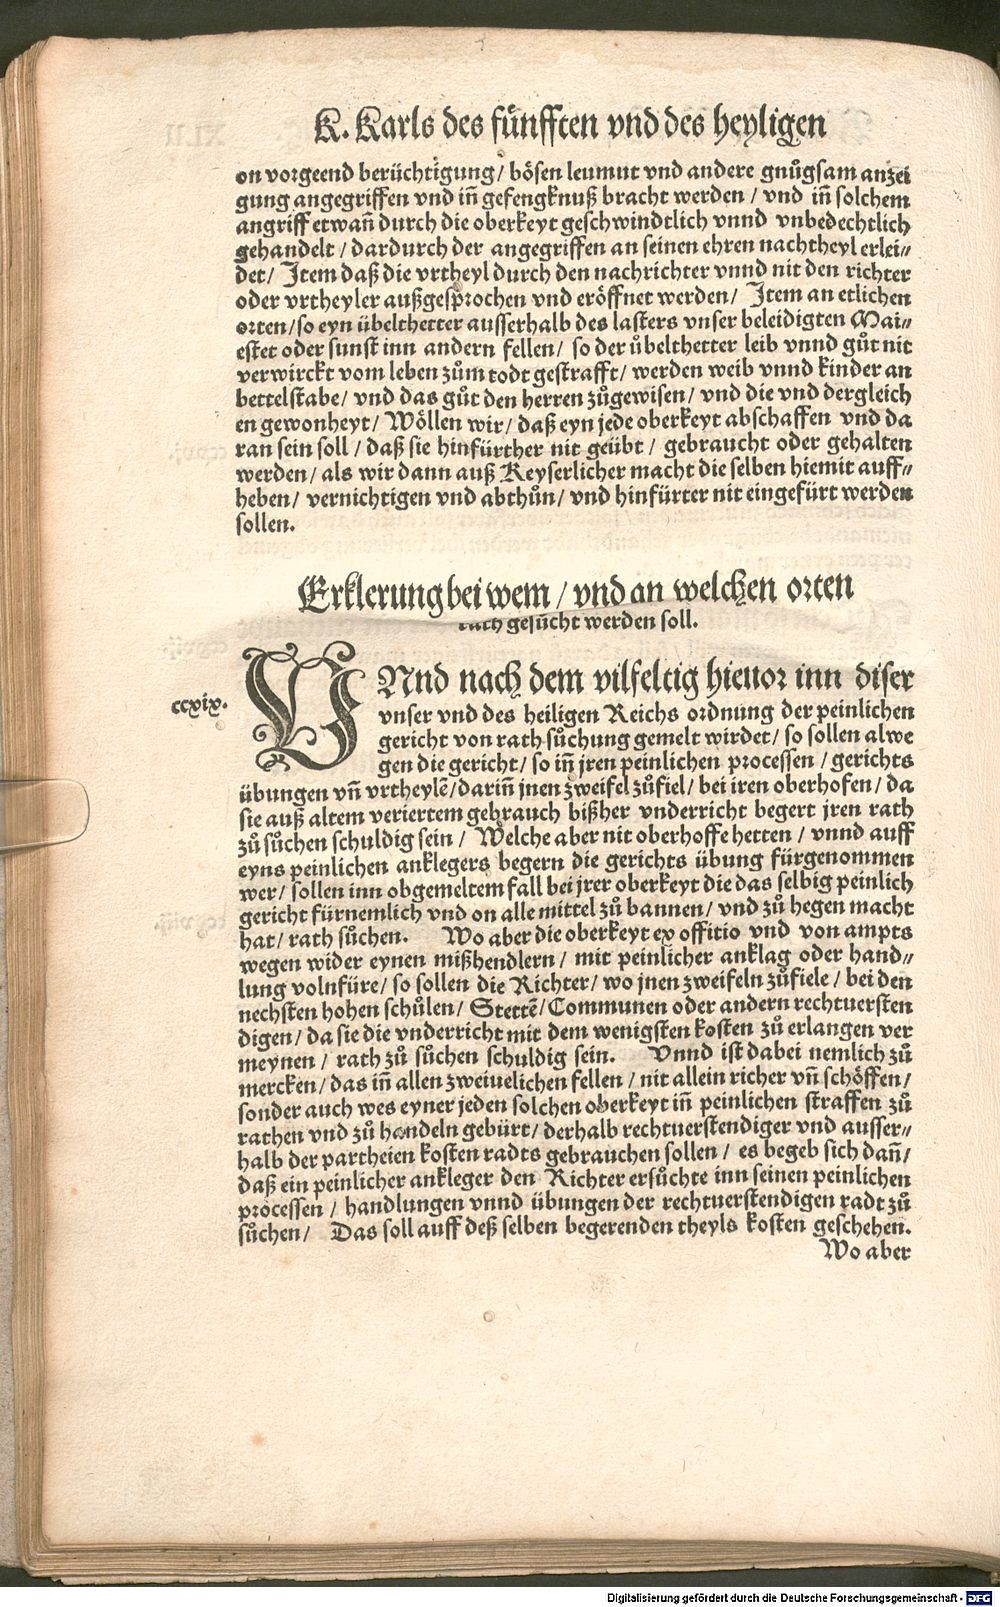 K. Karls des fünfften vnd des heyligen
on vorgeend berüchtigung/ bösen leumut vnd andere gnůgsam anzei
gung angegriffen vnd iñ gefengknuß bracht werden/ vnd iñ solchem
angriff etwañ durch die oberkeyt geschwindtlich vnnd vnbedechtlich
gehandelt/ dardurch der angegriffen an seinen ehren nachtheyl erlei⸗
det/ Item daß die vrtheyl durch den nachrichter vnnd nit den richter
oder vrtheyler außgesprochen vnd eröffnet werden/ Item an etlichen
orten/so eyn übelthetter ausserhalb des lasters vnser beleidigten Mai⸗
estet oder sunst inn andern fellen/ so der übelthetter leib vnnd gůt nit
verwirckt vom leben zům todt gestrafft/ werden weib vnnd kinder an
bettelstabe/ vnd das gůt den herren zůgewisen/ vnd die vnd dergleich
en gewonheyt/ Wöllen wir/ daß eyn jede oberkeyt abschaffen vnd da
ran sein soll/ daß sie hinfürther nit geübt/ gebraucht oder gehalten
werden/ als wir dann auß Keyserlicher macht die selben hiemit auff⸗
heben/ vernichtigen vnd abthůn/ vnd hinfürter nit eingefürt werden
sollen.
Erklerung bei wem/ vnd an welchen orten
rath gesůcht werden soll.
ccxix.
VNnd nach dem vilfeltig hieuor inn diser
vnser vnd des heiligen Reichs ordnung der peinlichen
gericht von rath sůchung gemelt wirdet/ so sollen alwe
gen die gericht/ so iñ jren peinlichen processen/ gerichts
übungen vñ vrtheylẽ/ dariñ jnen zweifel zůfiel/ bei iren oberhofen/ da
sie auß altem veriertem gebrauch bißher vnderricht begert jren rath
zů sůchen schuldig sein/ Welche aber nit oberhoffe hetten/ vnnd auff
eyns peinlichen anklegers begern die gerichts übung fürgenommen
wer/ sollen inn obgemeltem fall bei jrer oberkeyt die das selbig peinlich
gericht fürnemlich vnd on alle mittel zů bannen/ vnd zů hegen macht
hat/ rath sůchen. Wo aber die oberkeyt ex offitio vnd von ampts
wegen wider eynen mißhendlern/ mit peinlicher anklag oder hand⸗
lung volnfüre/ so sollen die Richter/ wo jnen zweifeln zůfiele/ bei den
nechsten hohen schůlen/ Stettẽ/ Communen oder andern rechtuersten
digen/ da sie die vnderricht mit dem wenigsten kosten zů erlangen ver
meynen/ rath zů sůchen schuldig sein. Vnnd ist dabei nemlich zů
mercken/ das iñ allen zweiuelichen fellen/ nit allein richer vñ schöffen/
sonder auch wes eyner jeden solchen oberkeyt iñ peinlichen straffen zů
rathen vnd zů handeln gebürt/ derhalb rechtuerstendiger vnd ausser⸗
halb der partheien kosten radts gebrauchen sollen/ es begeb sich dañ/
daß ein peinlicher ankleger den Richter ersůchte inn seinen peinlichen
processen/ handlungen vnnd übungen der rechtuerstendigen radt zů
sůchen/ Das soll auff deß selben begerenden theyls kosten geschehen.
Wo aber
Digitalisierung gefördert durch die Deutsche Forschungsgemeinschaft - DFG